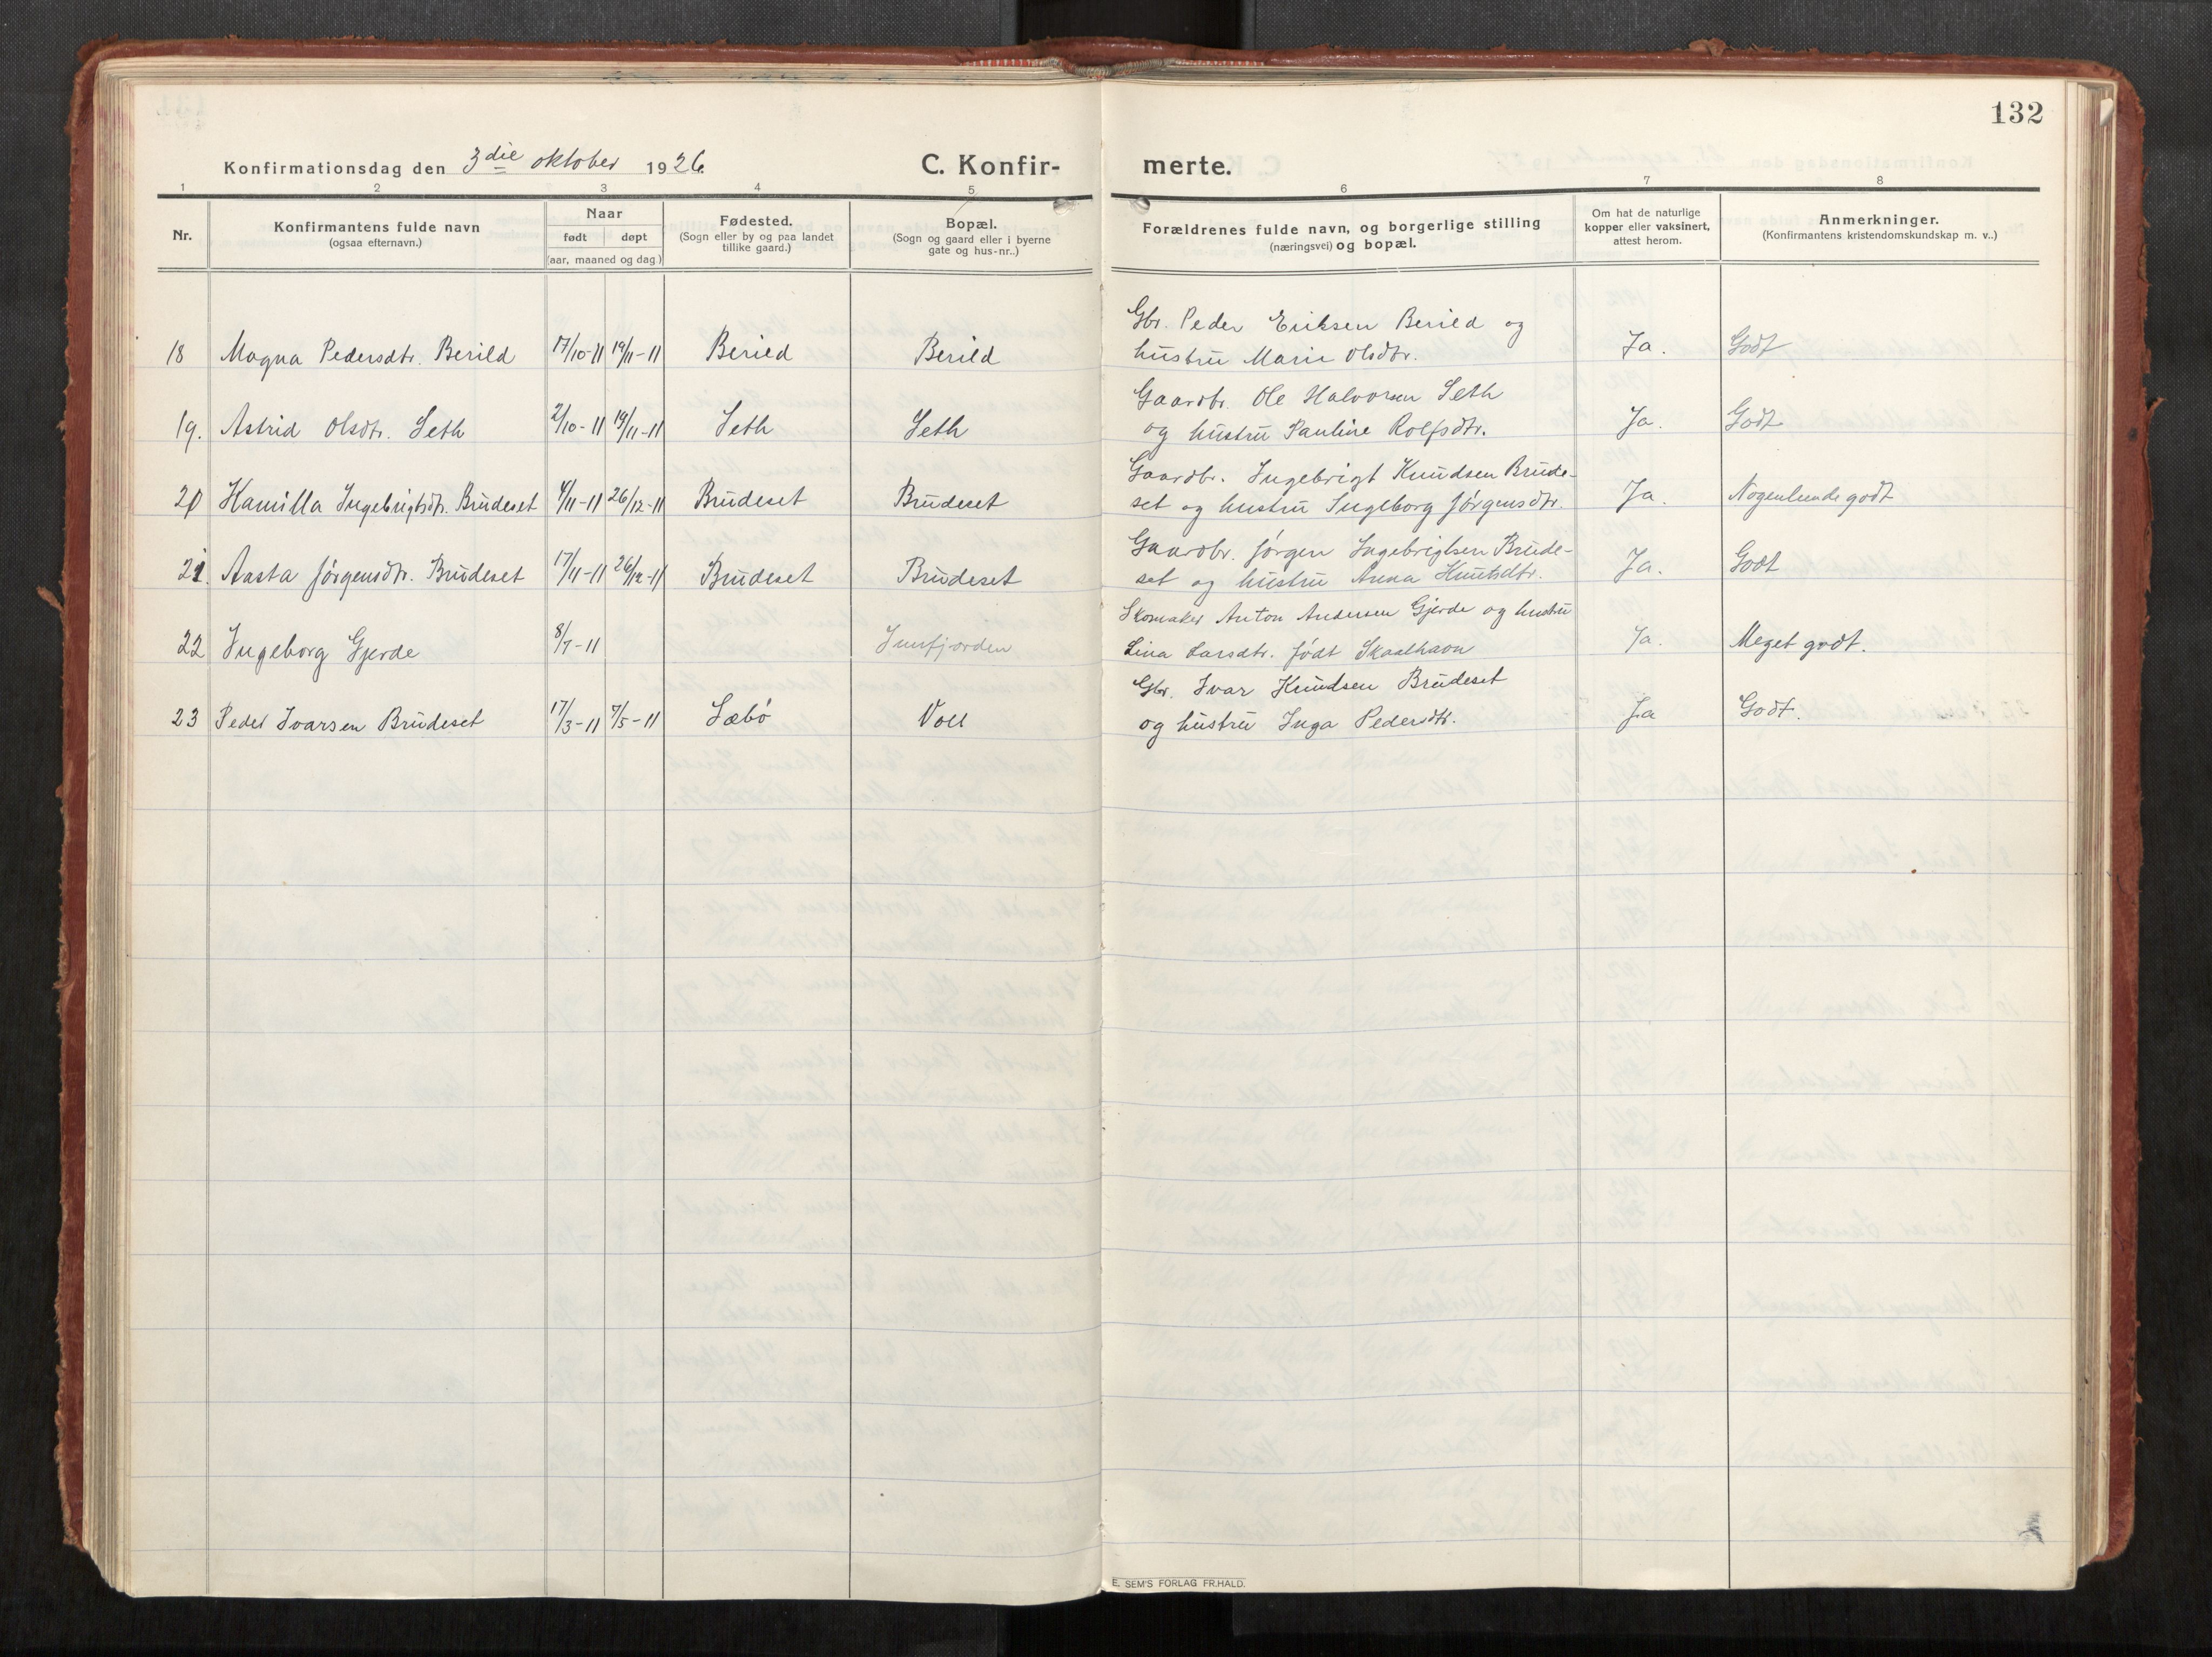 132
Konfirmationsdag den 3die oktober 1926.
C. Konfir-
merte.
1 2 3 4 5 6 7 8
Nr.
Konfirmantens fulde navn
(ogsaa efternavn.)
Naar
født døpt
(aar, maaned og dag)
Fødested.
(Sogn eller by og paa landet
tillike gaard.)
Bopæl.
(Sogn og gaard eller i byerne
gate og hus-nr..)
Forældrenes fulde navn, og borgerlige stilling
(næringsvei) og bopæl.
Om hat de naturlige
kopper eller vaksinert,
attest herom.
Anmerkninger.
(Konfirmantens kristendomskundskap m. v..)
Gbr. Peder Eriksen Berild og
18 Magna Pedersdtr. Berild 17/10-11 19/11-11 Berild Berild hustru Marie Olsdtr. Ja. Godt
Gaardbr. Ole Halvorsen Seth
19. Astrid Olsdtr. Seth 2/10-11 19/11-11 Seth Seth og hustru Pauline Rolfsdtr. Ja. Godt
Gaardbr. Ingebrigt Knudsen Brude-
20 Hamilla Ingebrigtsdtr. Brudeset 4/11-11 26/12-11 Brudeset Brudeset set og hustru Ingeborg Jørgensdtr. Ja. Nogenlunde godt
Gaardbr. Jørgen Ingebrigtsen Brude-
21. Aasta Jørgensdtr. Brudeset 17/11-11 26/12-11 Brudeset Brudeset set og hustru Anna Knutsdtr. Ja. Godt
Skomaker Anton Andersen Gjerde og hustru
22 Ingeborg Gjerde 8/7-11 Innfjorden Lina Larsdtr. født Skaalhavn Ja. Meget godt.
Gbr. Ivar Knudsen Brudeset
23 Peder Ivarsen Brudeset 17/3-11 7/5-11 Sæbö Voll og hustru Inga Pedersdtr. Ja Godt.
E. SEM'S FORLAG FR.HALD.